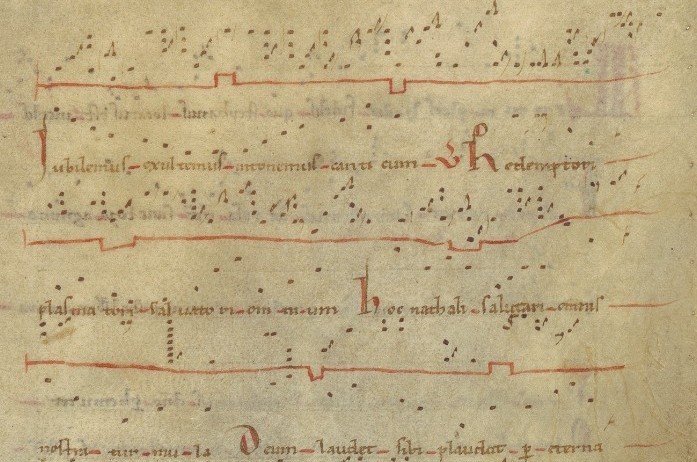 Jubilemus exultemus intonemus canti cum ℣ Redemptori
plasmatori salvato ri om ni um hoc nathali salutari omnis
nostra tur mu la Deum laudet sibi plaudat per eterna